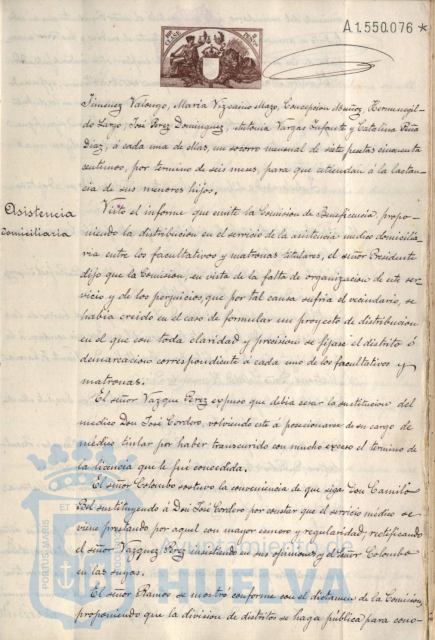 A1.550.076 *
Jimenez Valongo, Maria Vizcaino Mazo, Concepcion Muñoz, Hermenegil-
do Largo, José Perez Dominguez, Antonia Vargas Infante y Catalina Peña
Diaz, á cada una de ellas, un socorro mensual de siete pesetas cincuenta
centimos, por termino de seis meses, para que atiendan á la lactan-
cia de sus menores hijos.
Asistencia
Domiciliaria
Visto el informe que emite la Comision de Beneficencia, propo-
niendo la distribucion en el servicio de la asistencia médico domicilia-
ria entre los facultativos y matronas titulares, el señor Presidente
dijo que la Comision, en vista de la falta de organizacion de este ser-
vicio y de los perjuicios que por tal causa sufria el vecindario, se
habia creido en el caso de formular un proyecto de distribucion
en el que con toda claridad y precision se fijase el distrito ó
demarcacion correspondiente á cada uno de los facultativos y
matronas.
El señor Vazque Perez expuso que debia cesar la sustitucion del
medico Don José Cordero, volviendo este á posesionarse de su cargo de
médico titular por haber transcurrido con mucho exceso el termino de
la licencia que le fué concedida.
El señor Colombo sostuvo la conveniencia de que siga Don Camilo
Bel sustituyendo á Don José Cordero por constar que el servicio médico se
viene prestando por aquel con mayor esmero y regularidad, rectificando
el señor Vazquez Perez insistiendo en sus opiniones y el señor Colombo
en las suyas.
El señor Ramos se mostró conforme con el dictamen de la Comision,
proponiendo que la division de distritos se haga publica para cono-
PORTUS MARIS
ET
Ayuntamiento
HUELVA